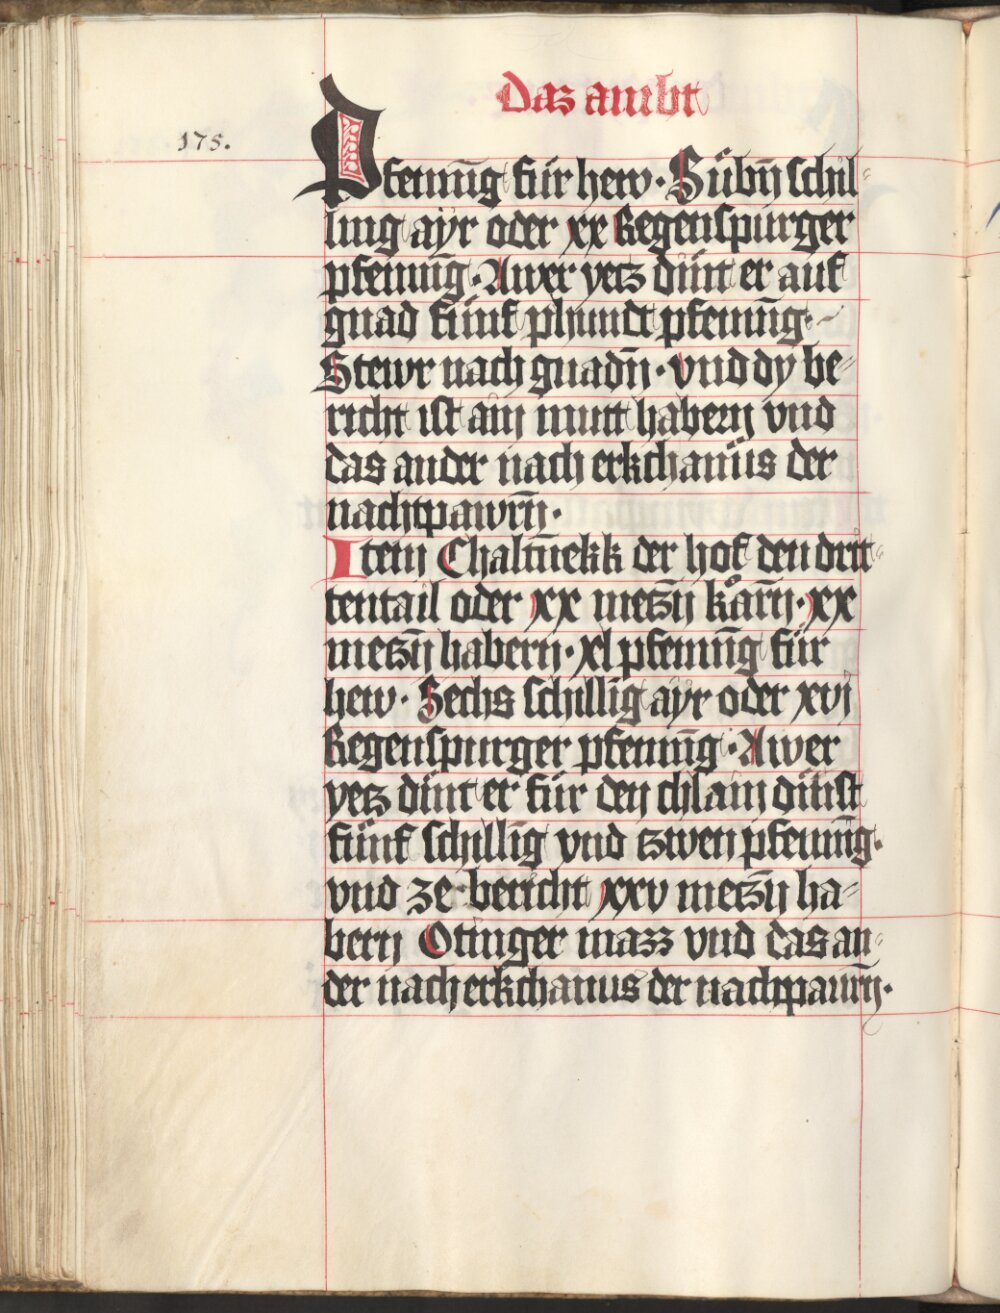 Das ambt
175.
Pfenning̅ für hew · Sübn̄ schil⸗
ling ayr oder xx Regenspurger
pfennin̅g · Awer yetz dint er auf
gnad fünf phundt pfenni̅ng ·
Stewr nach gnadn̄ · vnd dy be⸗
richt ist ain mutt habern vnd
das ander nach erkchantüs der
nachtpawrn̄ ·
Item Chalm̄ekk der hof den drit⸗
tentail oder xx metzn̄ kårn̄ · xx
metzn̄ habern · xl pfennin̅g für
hew · Sechs schilli̅g ayr oder xvj
Regenspurger pfennin̅g · Awer
yetz dint er für den chlain dinst
fünf schilli̅g vnd zwen pfennin̅g ·
vnd ze bericht xxv metzn̄ ha⸗
bern Otinger mazz vnd das an⸗
der nach erkchantnus der nachpaurn̄ ·